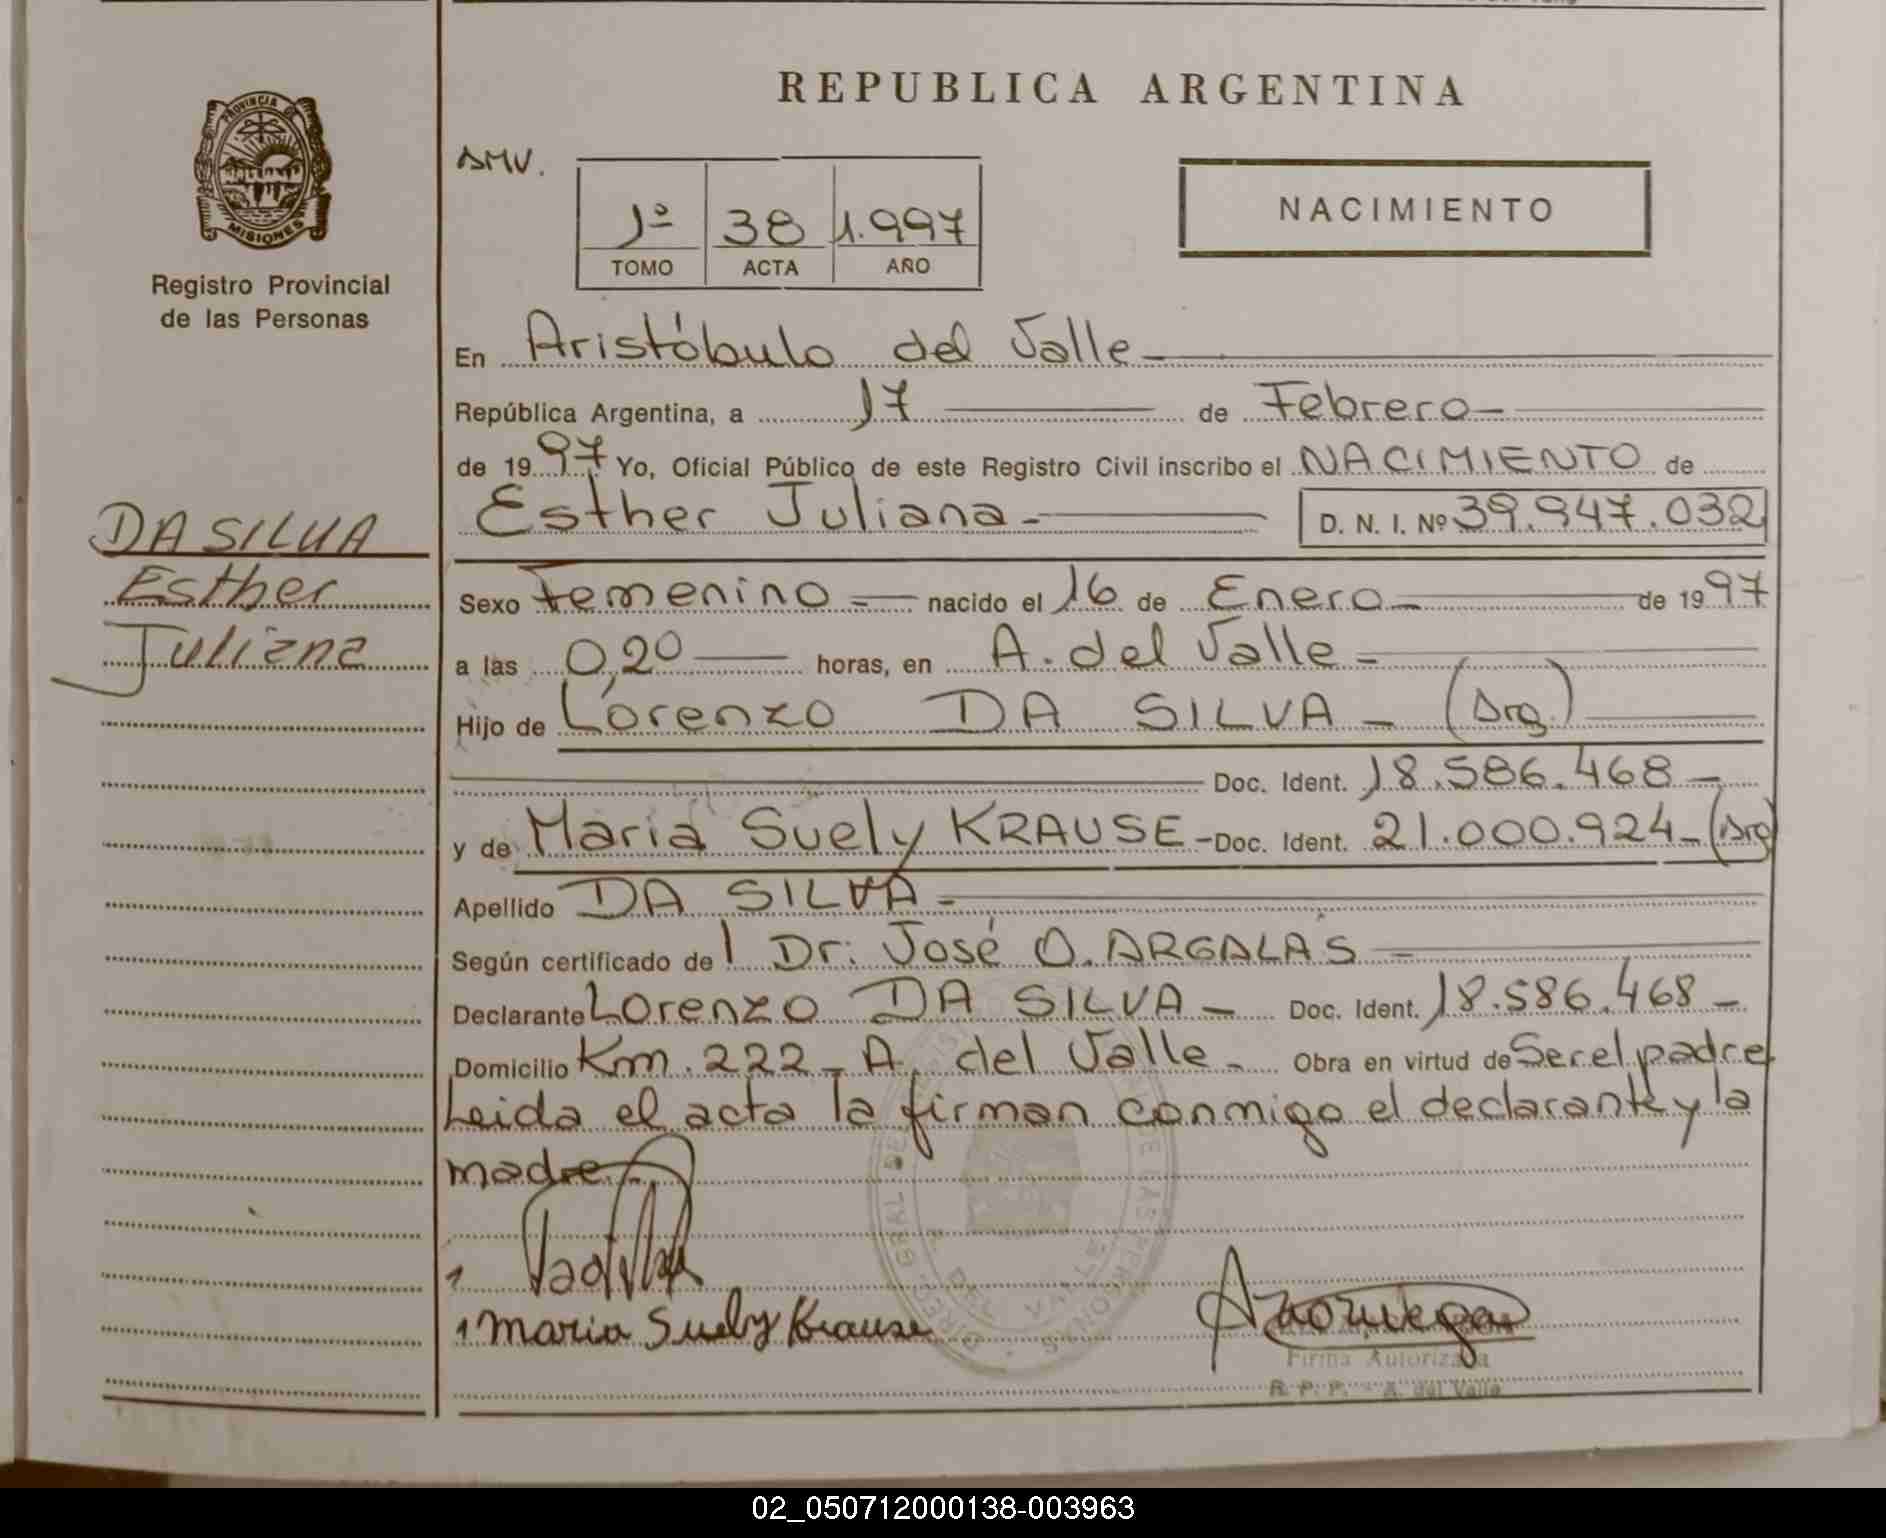 REPUBLICA ARGENTINA
PROVINCIA DE
MISIONES
Registro Provincial
de las Personas
DMV.
1º 38 1.997
TOMO ACTA AÑO
NACIMIENTO
En Aristóbulo del Valle
República Argentina, a 17 de Febrero
de 1997 Yo, Oficial Público de este Registro Civil inscribo el NACIMIENTO de
Esther Juliana D. N. I. Nº 39.947.032
DA SILVA
Esther
Juliana
Sexo Femenino nacido el 16 de Enero de 1997
a las 0,20 horas, en A. del Valle
Hijo de Lorenzo DA SILVA (Arg.)
Doc. Ident. 18.586.468
y de Maria Suely KRAUSE Doc. Ident. 21.000.924 (Arg)
Apellido DA SILVA
Según certificado de l Dr: José O. ARGALAS
Declarante Lorenzo DA SILVA Doc. Ident. 18.586.468
Domicilio Km. 222 - A. del Valle Obra en virtud de Ser el padre
Leida el acta la firman conmigo el declarante y la
madre
1 Maria Suely Krause
Firma Autorizada
R. P. P. - A. del Valle
02_050712000138-003963